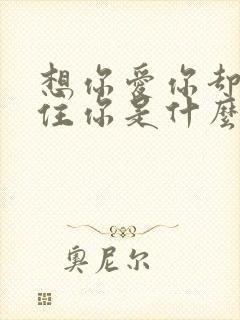 想你爱你却
住你是什麽
奥尼尔